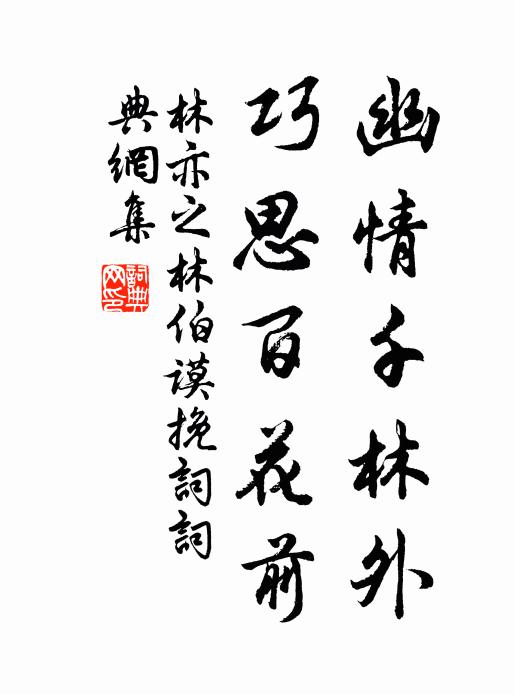 幽情千林外
巧思百花前
林亦之林伯謨挽詞詞
典網集
詞典
网印